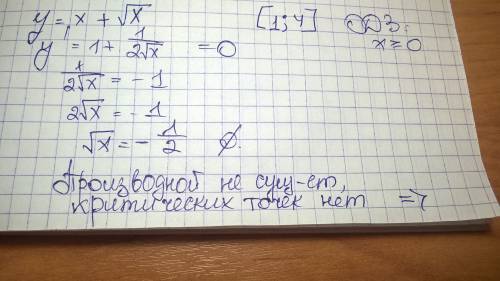 y = x + √x [1;4] ОДЗ: x ≥ 0
y' = 1 + 1/(2√x) = 0
1/(2√x) = -1
2√x = -1
√x = -1/2 ∅.
Производной не сущ-ет,
критических точек нет =>